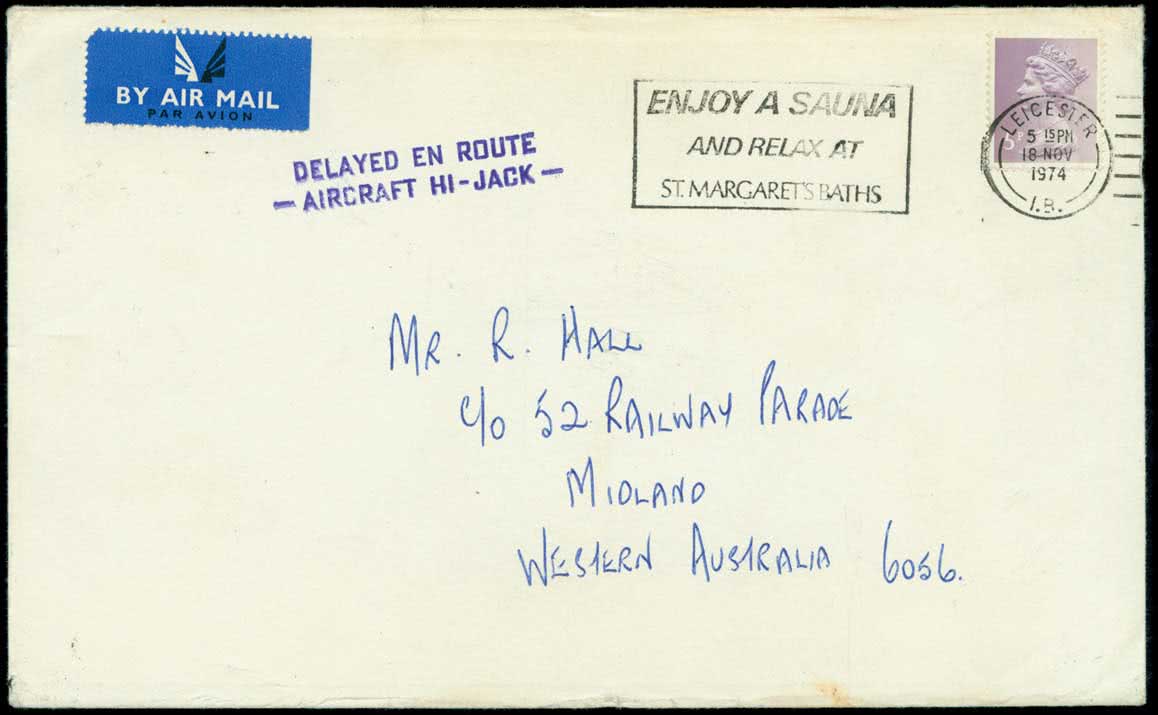 BY AIR MAIL
PAR AVION
DELAYED EN ROUTE
— AIRCRAFT HI-JACK —
ENJOY A SAUNA
AND RELAX AT
ST. MARGARET'S BATHS
LEICESTER
5 15PM
18 NOV
1974
I.B.
Mr. R. Hall
c/o 52 Railway Parade
Midland
Western Australia 6056.